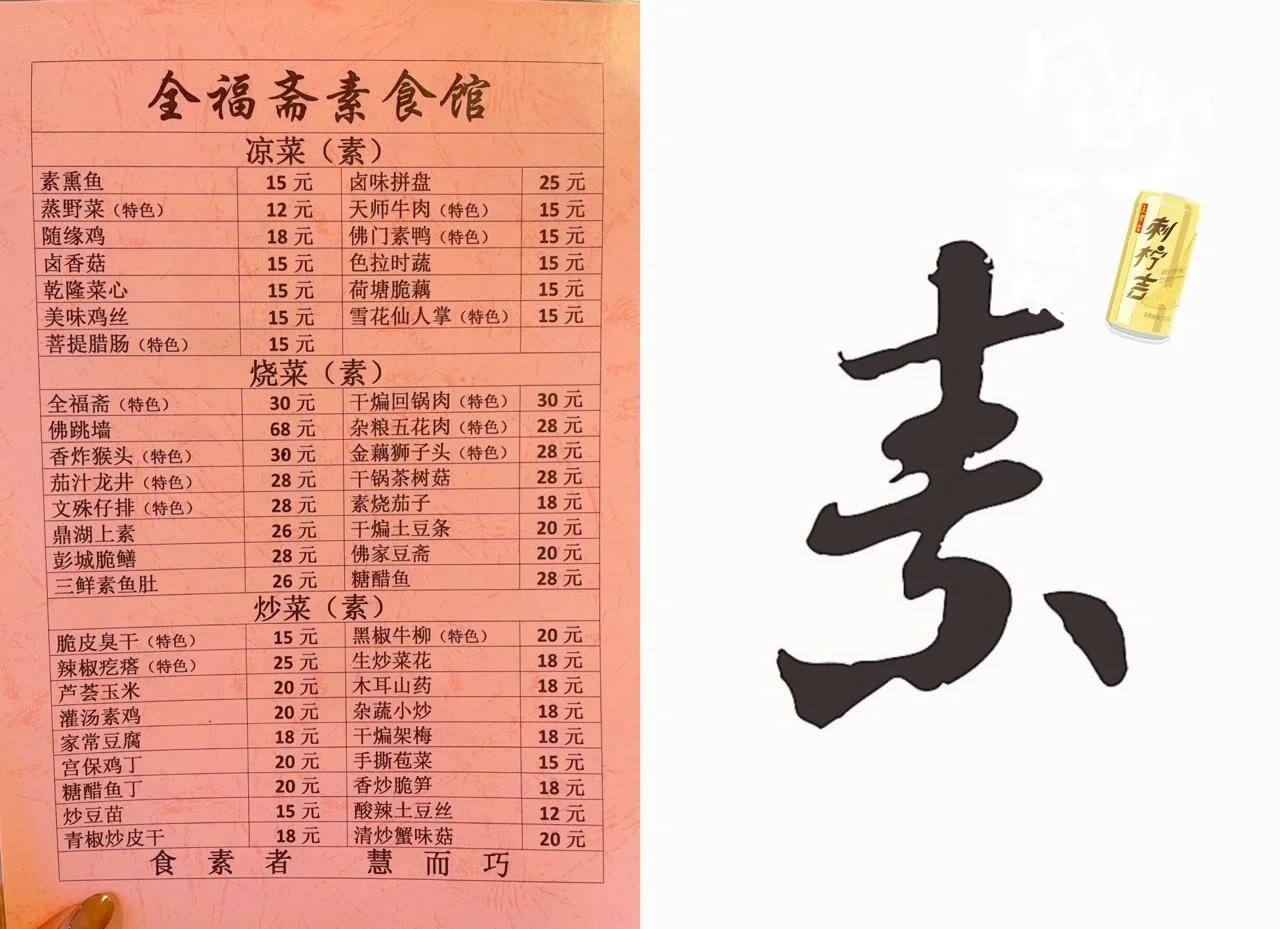 全福斋素食馆
凉菜（素）
素熏鱼 15 元 卤味拼盘 25 元
蒸野菜（特色） 12 元 天师牛肉（特色） 15 元
随缘鸡 18 元 佛门素鸭（特色） 15 元
卤香菇 15 元 色拉时蔬 15 元
乾隆菜心 15 元 荷塘脆藕 15 元
美味鸡丝 15 元 雪花仙人掌（特色） 15 元
菩提腊肠（特色） 15 元
烧菜（素）
全福斋（特色） 30 元 干煸回锅肉（特色） 30 元
佛跳墙 68 元 杂粮五花肉（特色） 28 元
香炸猴头（特色） 30 元 金藕狮子头（特色） 28 元
茄汁龙井（特色） 28 元 干锅茶树菇 28 元
文殊仔排（特色） 28 元 素烧茄子 18 元
鼎湖上素 26 元 干煸土豆条 20 元
彭城脆鳝 28 元 佛家豆斋 20 元
三鲜素鱼肚 26 元 糖醋鱼 28 元
炒菜（素）
脆皮臭干（特色） 15 元 黑椒牛柳（特色） 20 元
辣椒疙瘩（特色） 25 元 生炒菜花 18 元
芦荟玉米 20 元 木耳山药 18 元
灌汤素鸡 20 元 杂蔬小炒 18 元
家常豆腐 18 元 干煸架梅 18 元
宫保鸡丁 20 元 手撕苞菜 15 元
糖醋鱼丁 20 元 香炒脆笋 18 元
炒豆苗 15 元 酸辣土豆丝 12 元
青椒炒皮干 18 元 清炒蟹味菇 20 元
食素者 慧而巧
素
刺柠吉